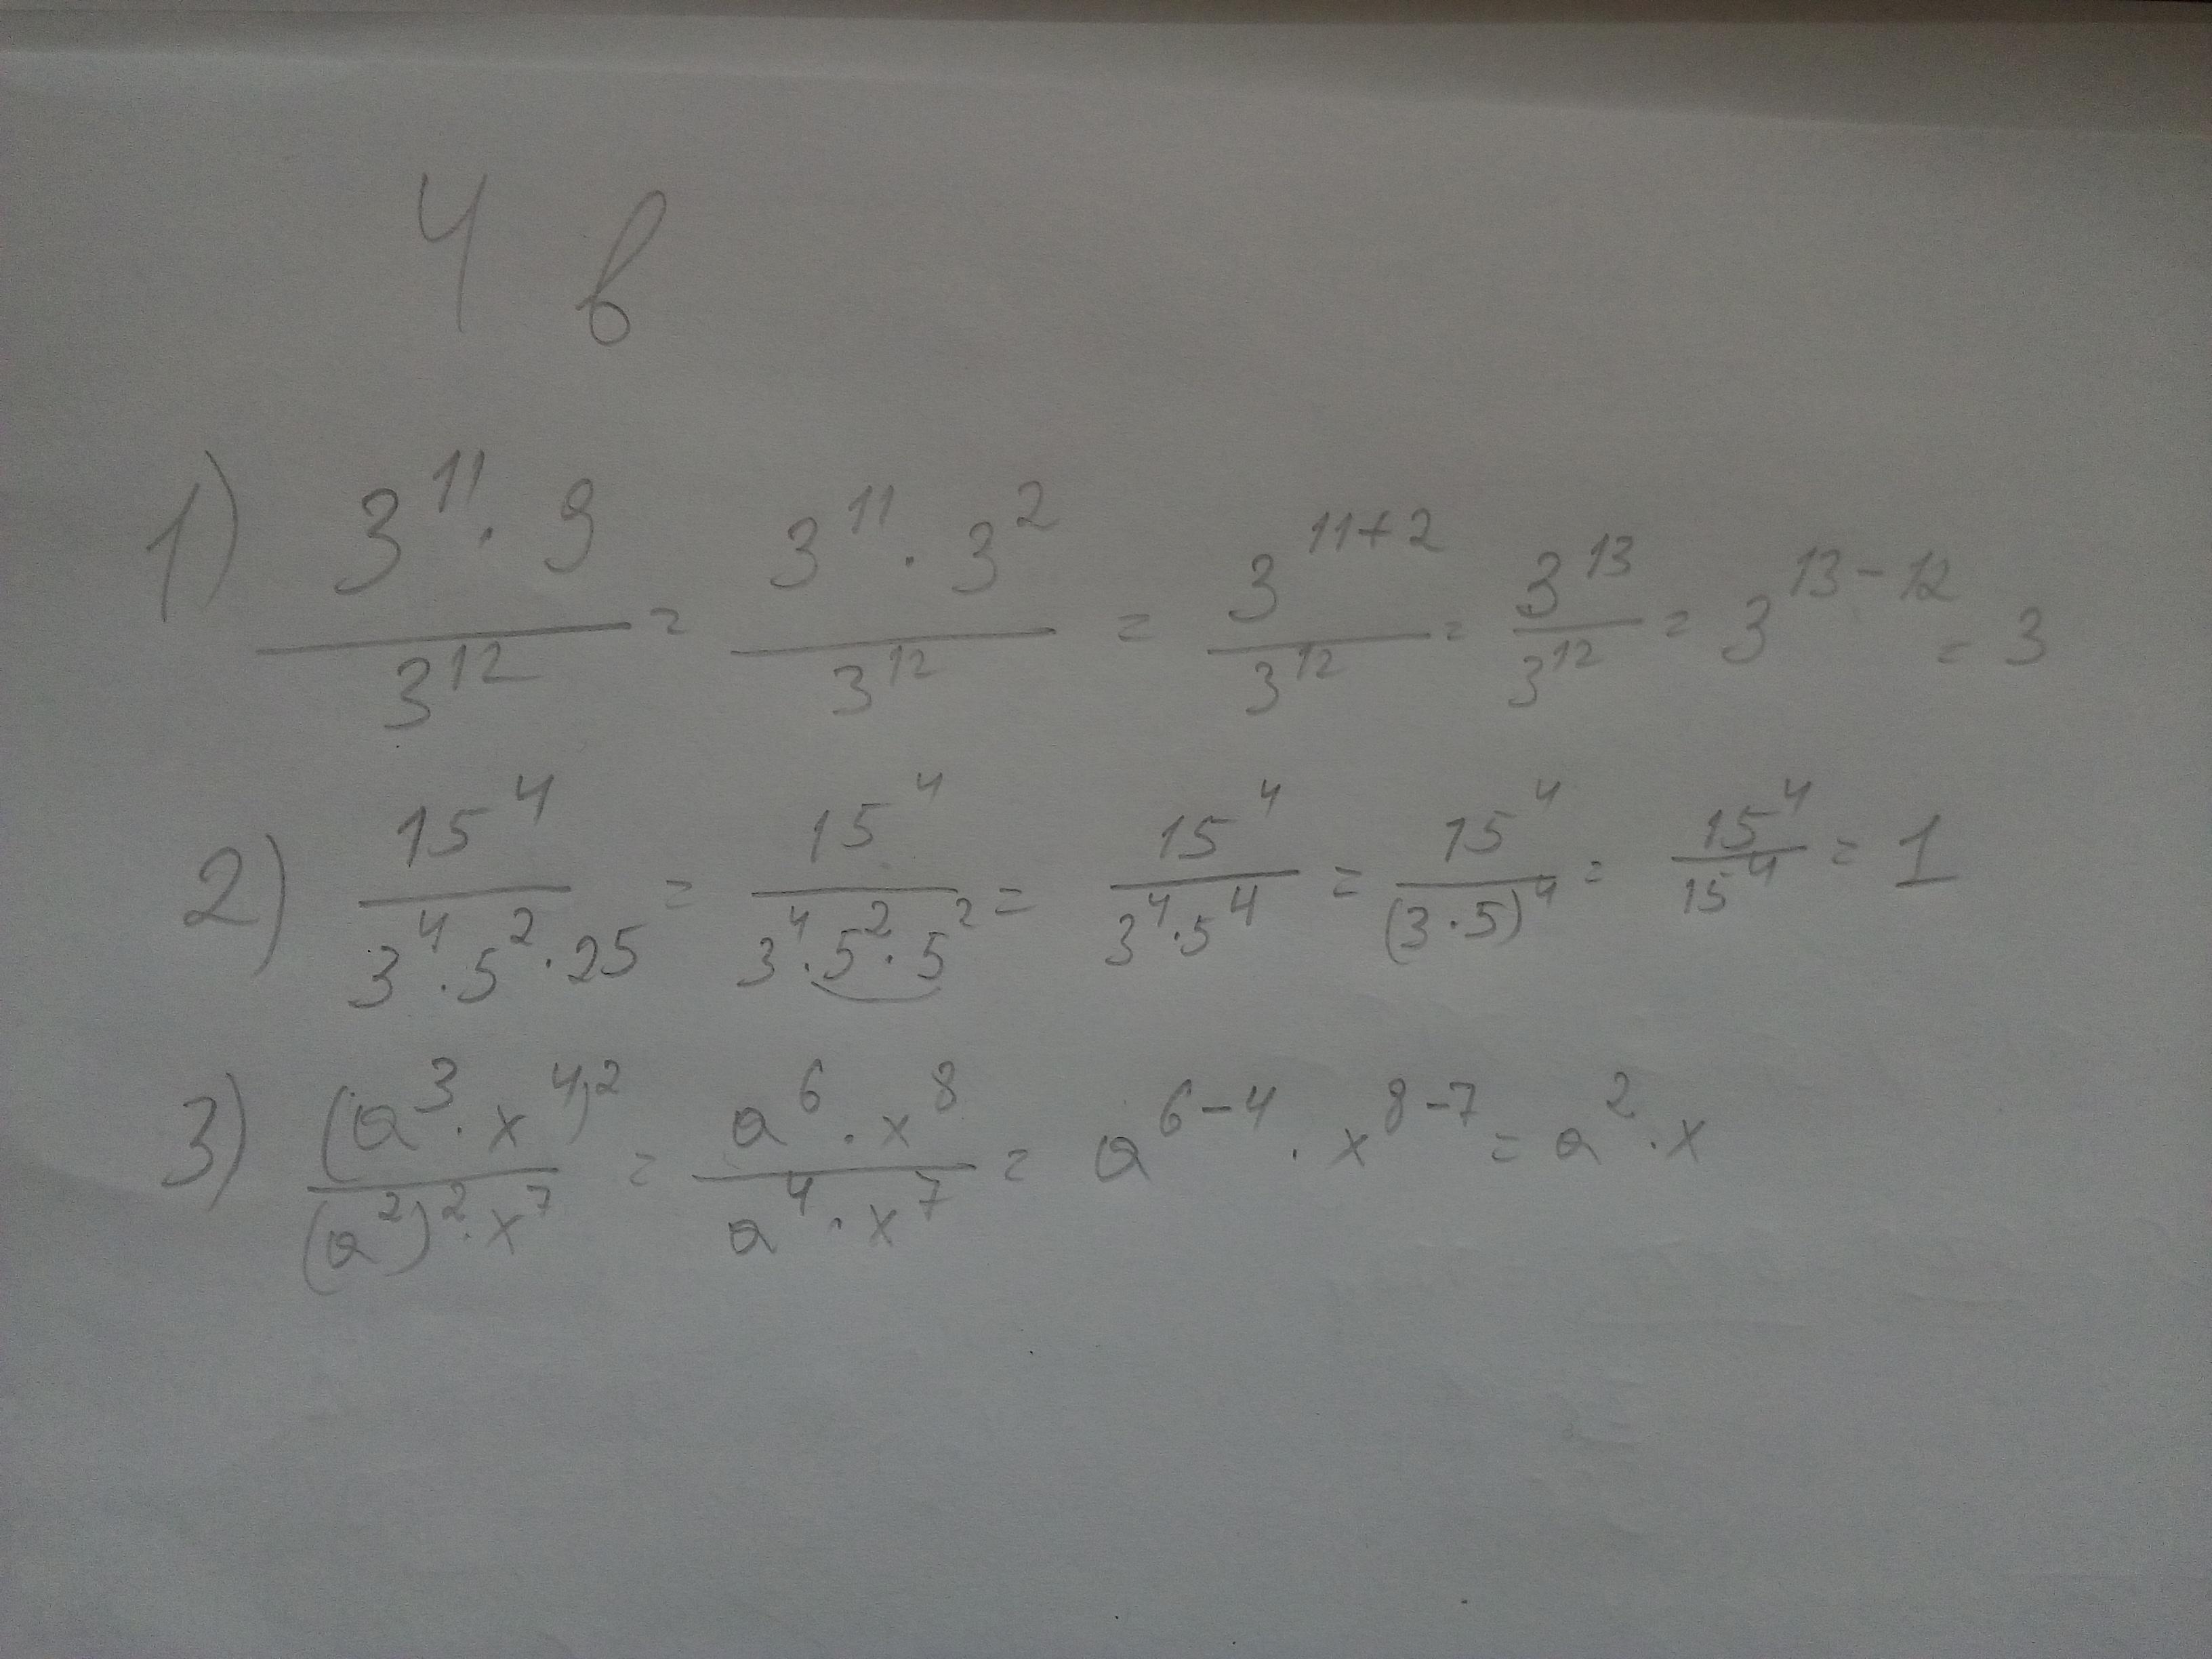 4 в
1) \frac{3^{11} \cdot 9}{3^{12}} = \frac{3^{11} \cdot 3^{2}}{3^{12}} = \frac{3^{11+2}}{3^{12}} = \frac{3^{13}}{3^{12}} = 3^{13-12} = 3
2) \frac{15^{4}}{3^{4} \cdot 5^{2} \cdot 25} = \frac{15^{4}}{3^{4} \cdot 5^{2} \cdot 5^{2}} = \frac{15^{4}}{3^{4} \cdot 5^{4}} = \frac{15^{4}}{(3 \cdot 5)^{4}} = \frac{15^{4}}{15^{4}} = 1
3) \frac{(a^{3} \cdot x^{4})^{2}}{(a^{2})^{2} \cdot x^{7}} = \frac{a^{6} \cdot x^{8}}{a^{4} \cdot x^{7}} = a^{6-4} \cdot x^{8-7} = a^{2} \cdot x